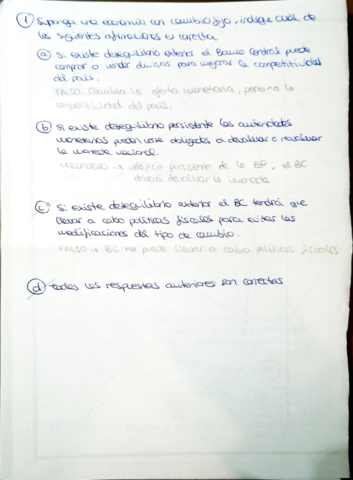 ① Suponga una economía con cambio fijo, indique cuál de
las siguientes afirmaciones es correcta
ⓐ Si existe desequilibrio exterior el Banco Central puede
comprar o vender divisas para mejorar la competitividad
del país.
FALSO cambia la oferta monetaria, pero no la
competitividad del país.
ⓑ Si existe desequilibrio persistente las autoridades
monetarias pueden verse obligadas a devaluar o revaluar
la moneda nacional.
VERDADERO → déficit persistente de la BP, el BC
deberá devaluar la moneda
ⓒ Si existe desequilibrio exterior el BC tendrá que
llevar a cabo políticas fiscales para evitar las
modificaciones del tipo de cambio.
FALSO → BC no puede llevar a cabo políticas fiscales
ⓓ todas las respuestas anteriores son correctas